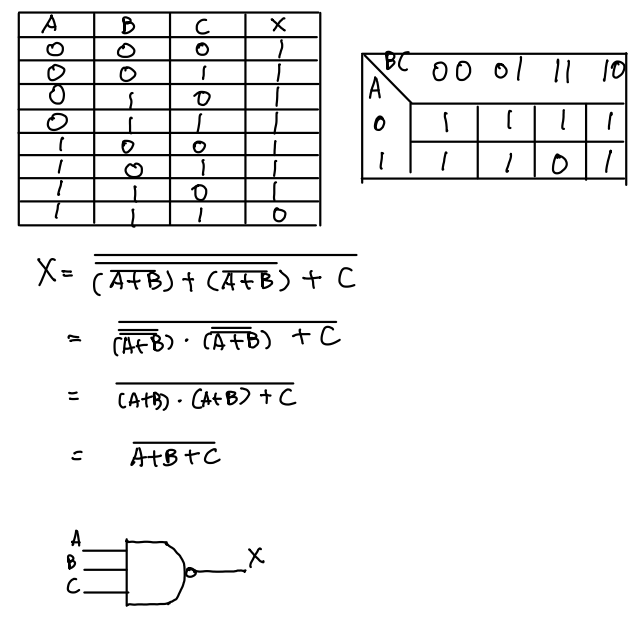 A B C X
0 0 0 1
0 0 1 1
0 1 0 1
0 1 1 1
1 0 0 1
1 0 1 1
1 1 0 1
1 1 1 0
BC 00 01 11 10
A
0 1 1 1 1
1 1 1 0 1
X = \overline{\overline{(\overline{A+B}) + (\overline{A+B})} + C}
= \overline{(\overline{\overline{A+B}}) · (\overline{\overline{A+B}}) + C}
= \overline{(A+B) · (A+B) + C}
= \overline{A+B+C}
A
B X
C